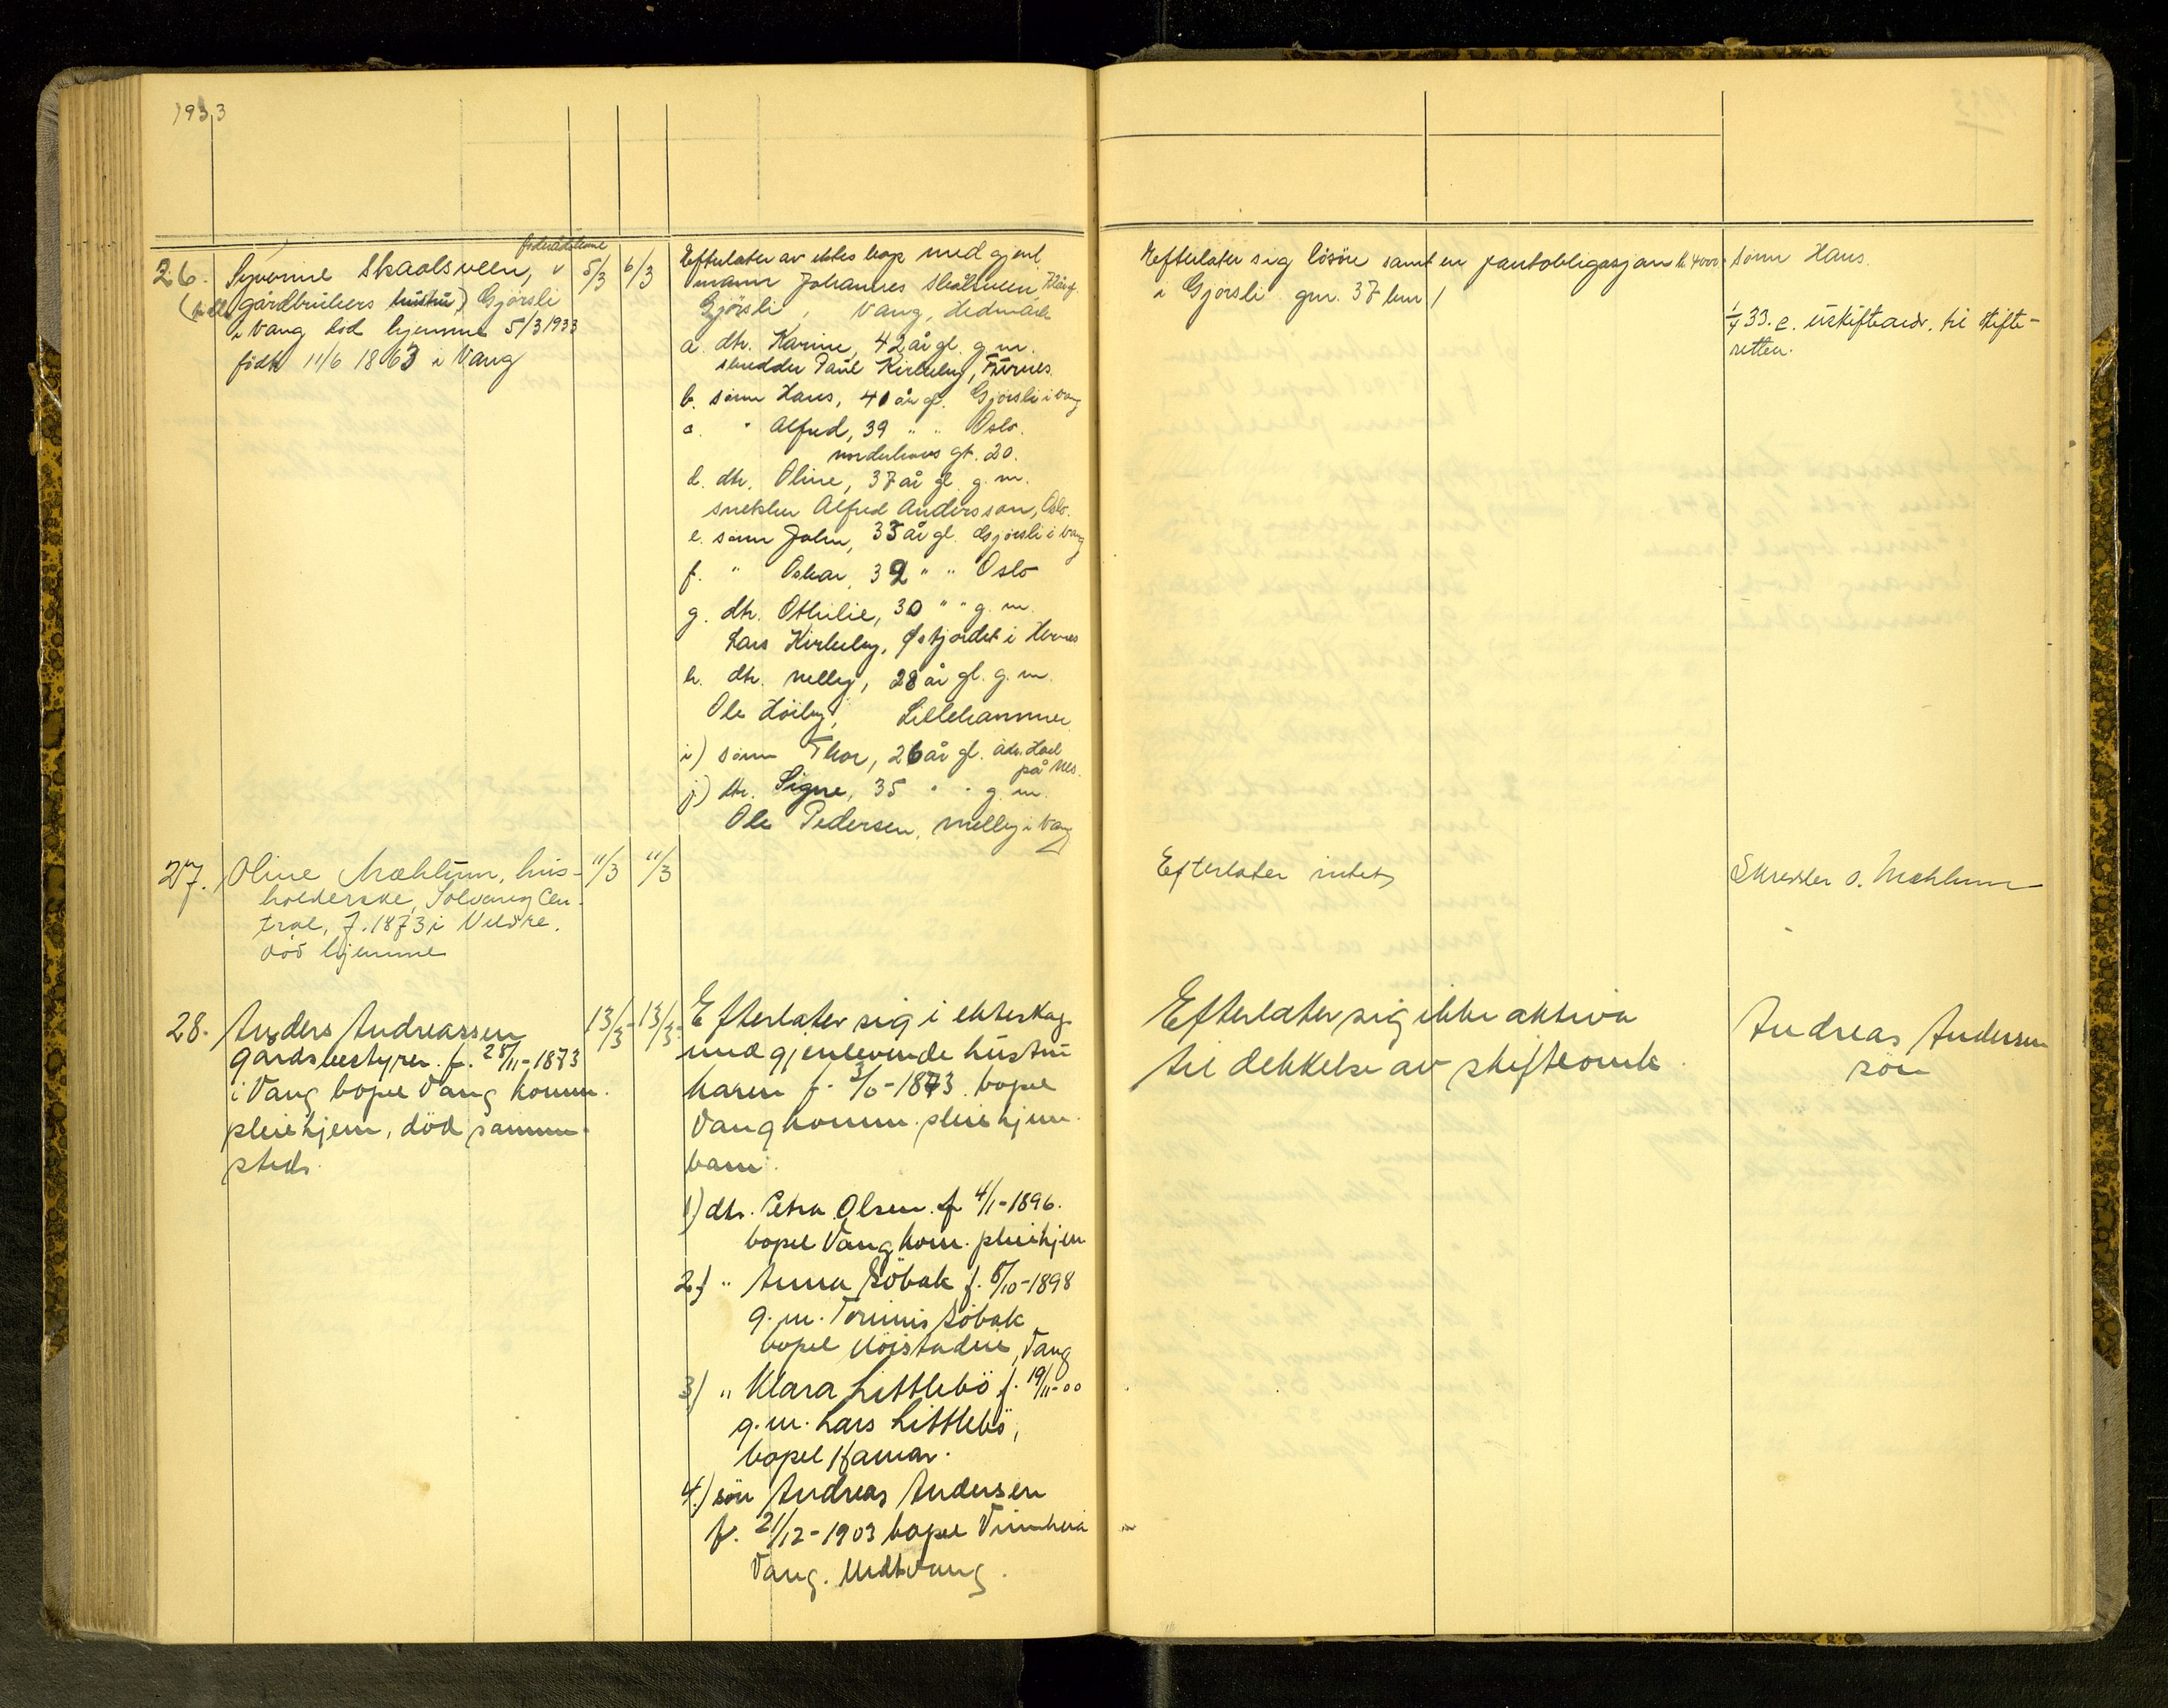 1933
26. Syverine Skaalsveen, v
gårdbrukers hustru) Gjörsli
i Vang död hjemme 5/3 1933
född 11/6 1863 i Vang
5/3 6/3
Efterlater av ekteskap med gjenl.
mann Johannes Skålsveen,
Gjörsli, Vang, Hedmark
a. dtr. Karine, 42 år gl. g. m.
skredder Paul Kirkeby, Furnes.
b. sönn Hans, 40 år gl. Gjörsli i Vang
c. " Alfred, 39 " " Oslo.
Norderhovs gt. 20.
d. dtr. Oline, 37 år gl. g. m.
snekker Alfred Andersson, Oslo.
e. sönn John, 33 år gl. Gjörsli i Vang
f. " Oskar, 32 " " Oslo
g. dtr. Othilie, 30 " " g. m.
Lars Kirkeby, i Furnes
h. dtr. Nelly, 28 år gl. g. m.
Ole Höiby, Lillehammer
i) sönn Thor, 26 år gl. adr.
på Nes.
j) dtr. Signe, 35 " " g. m.
Ole Pedersen, i Vang
Efterlater sig lösöre samt en pantobligasjon kr. 4000.-
i Gjörsli gnr. 37 bnr 1
Sönn Hans.
1/4 33. e. uskifteandr. til skifte-
retten.
27. Oline Mæhlum, hus-
holderske, Solvang Cen-
tral, f. 1873 i Veldre.
död hjemme
11/3 11/3
Efterlater intet
Skredder O. Mæhlum
28. Anders Andreassen
gårdsbestyrer. f. 28/11-1873
i Vang bopel Vang komm.
pleiehjem, död samme-
steds.
13/3 13/3
Efterlater sig i ekteskap
med gjenlevende hustru
Karen f. 3/10-1873. bopel
Vang komm. pleiehjem.
barn:
1) dtr. Petra Olsen. f 4/1-1896.
bopel Vang kom. pleiehjem
2) " Anna Söbak f. 5/10-1898
g. m. Söbak
bopel Höistadeie, Vang
3) " Klara Littlebö f. 19/11-00
g. m. Lars Littlebö,
bopel Hamar.
4.) sön Andreas Andersen
f. 21/12-1903 bopel
Vang. Midtvang.
Efterlater sig ikke aktiva
til dekkelse av skifteomk.
Andreas Andersen
sön